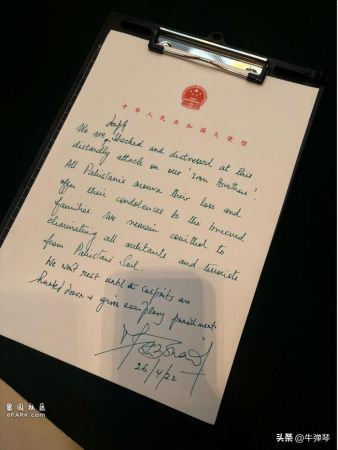 中华人民共和国大使馆
deeply
We are shocked and distressed at this
dastardly attack on our 'Iron Brothers'.
All Pakistanis mourn their loss and
offer their condolences to the bereaved
families. We remain committed to
eliminating all militants and terrorists
from Pakistani Soil.
We won't rest until culprits are
hunted down & given exemplary punishments
26/4/22
6PARK.COM
头条 @牛弹琴